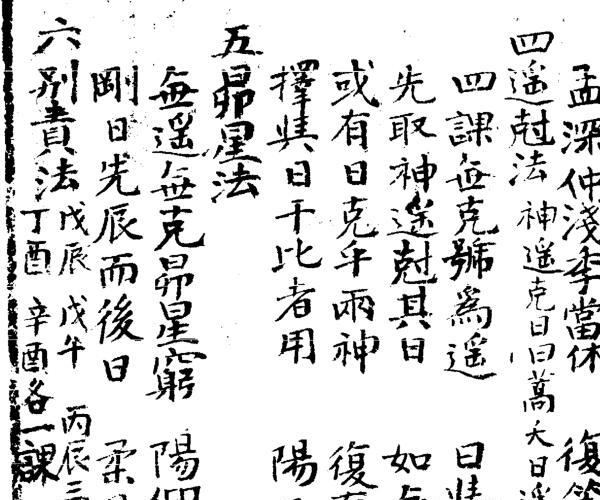 孟深仲淺季當休 復
四遥尅法 神遥克日曰蒿矢日
四課無克號為遥 日
先取神遥尅其日 如
或有日克乎兩神 復有
擇與日干比者用 陽
五昴星法
無遥無克昴星窮 陽
剛日先辰而後日 柔
六別責法 戊辰 戊午 丙辰三
丁酉 辛酉各一課